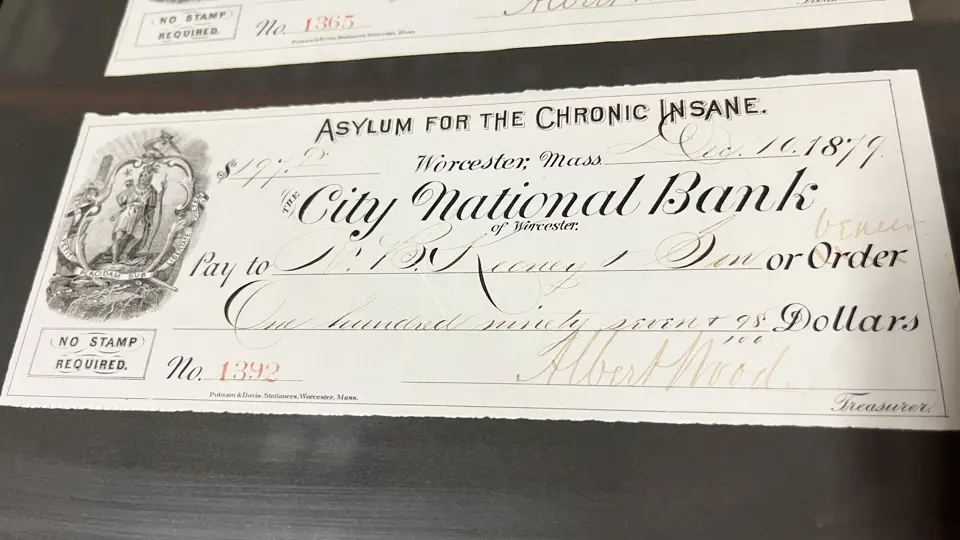 NO STAMP
REQUIRED.
No. 1365
Putnam & Davis, Stationers, Worcester, Mass.
ASYLUM FOR THE CHRONIC INSANE.
Worcester, Mass Dec. 10. 1879.
$197.
THE City National Bank
of Worcester.
Pay to B. Keeney & Son or Order
One hundred ninety seven & 98/100 Dollars
PLACIDAM SUB LIBERTATE
NO STAMP
REQUIRED.
No. 1392
Albert Wood.
Treasurer.
Putnam & Davis, Stationers, Worcester, Mass.